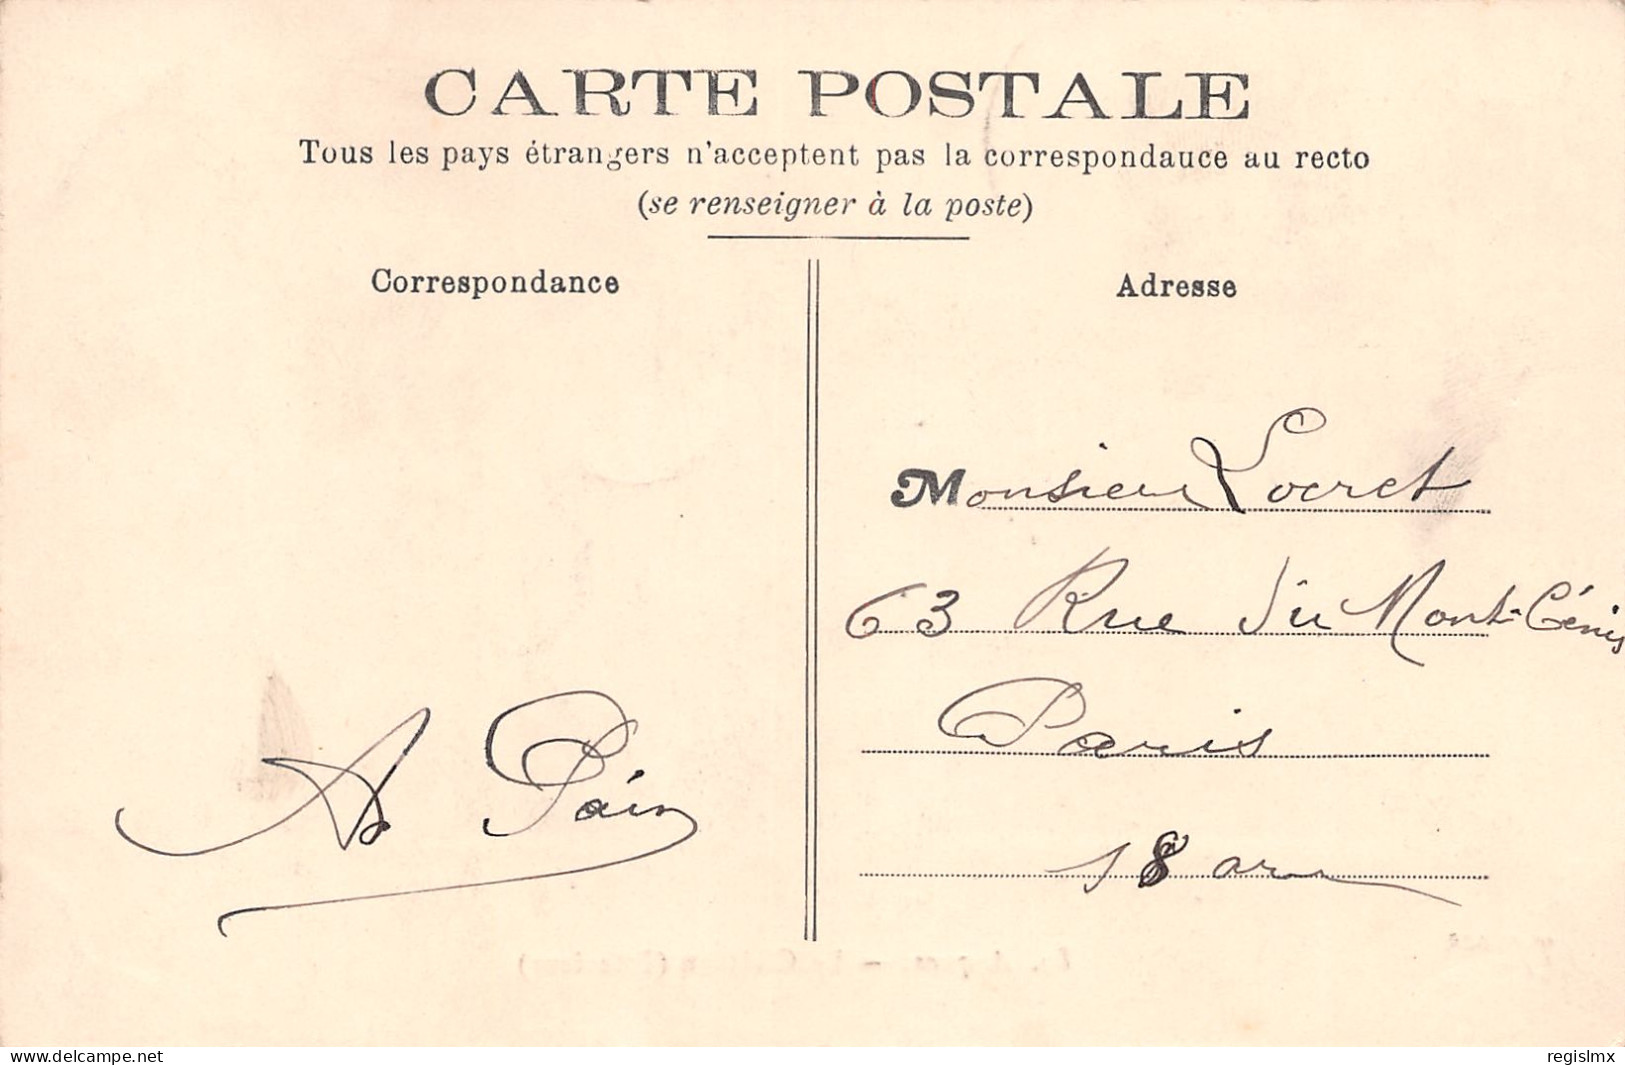 CARTE POSTALE
Tous les pays étrangers n'acceptent pas la correspondauce au recto
(se renseigner à la poste)
Correspondance
Adresse
Monsieur Locret
63 Rue du Mont-Cénis
Paris
18 arr
A Pain
delcampe.net
regislmx